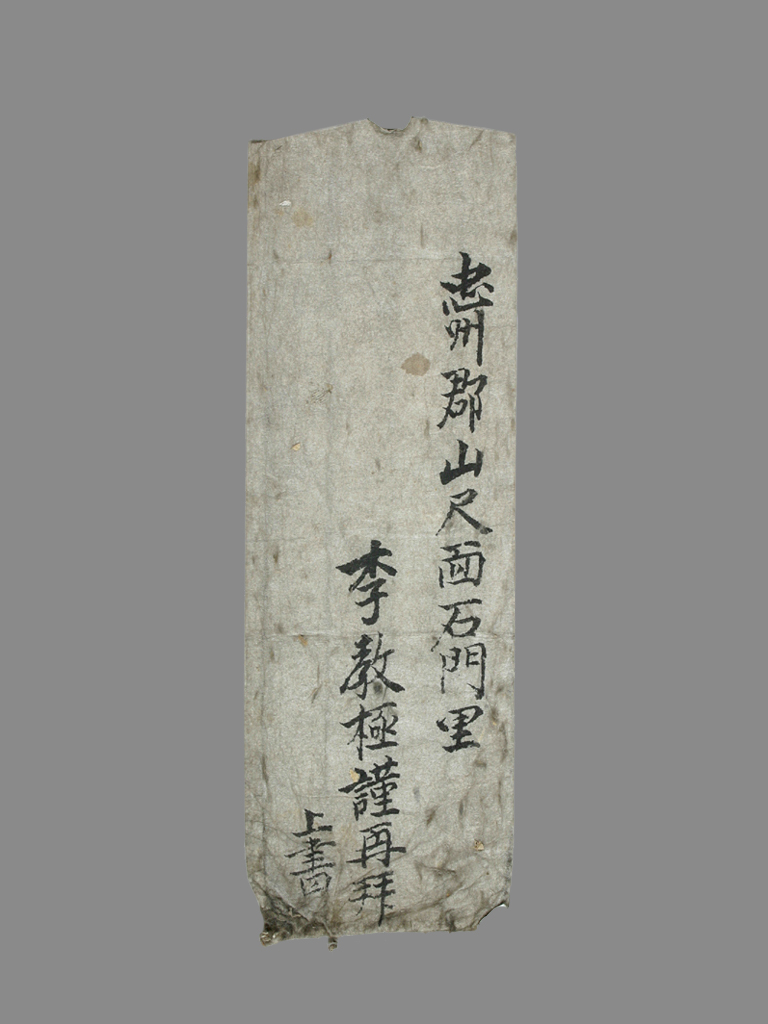 忠州郡山尺面石門里
李教極謹再拜
上書